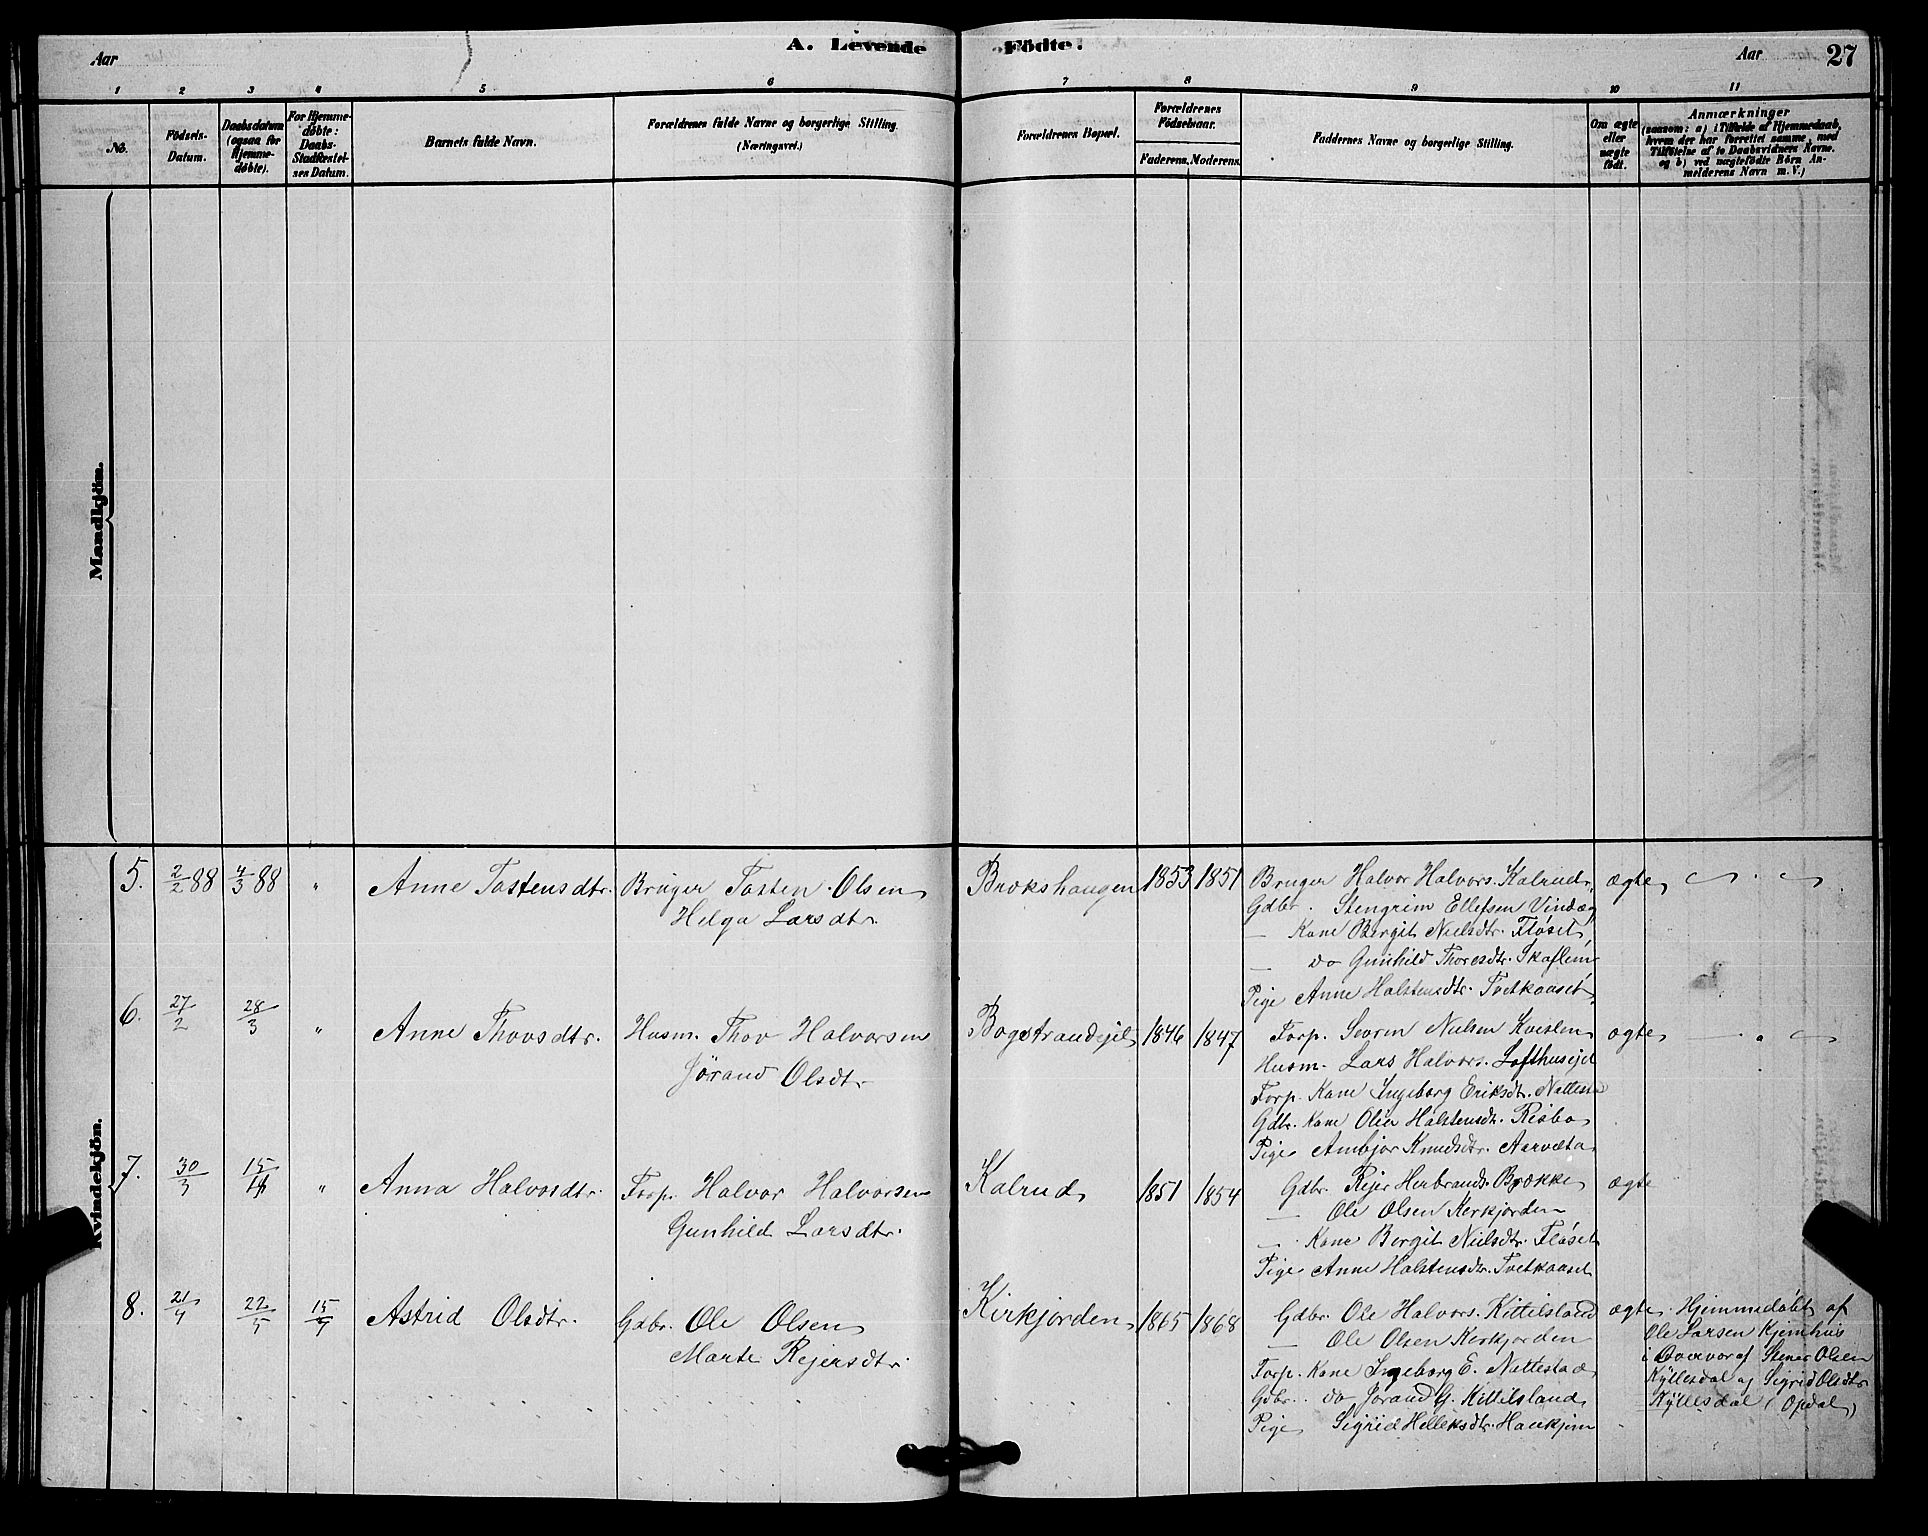 A. Levende Födte.
Aar
Aar
27
1 2 3 4 5 6 7 8 9 10 11
No.
Födsels-Datum.
Daabsdatum (ogsaa for Hjemme-döbte).
For Hjemme-döbte: Daabs-Stadfæstel-ses Datum.
Barnets fulde Navn.
Forældrenes fulde Navne og borgerlige Stilling.
(Næringsvei.)
Forældrenes Bopæl.
Forældrenes Födselsaar.
Faderens. Moderens.
Faddernes Navne og borgerlige Stilling.
Om ægte eller uægte födt.
Anmærkninger
(saasom: a) i Tilfælde af Hjemmedaab,
hvem der har forrettet samme, med
Tilföielse af to Daabsvidners Navne.
og b) ved uægtefödte Börn An-
melderens Navn m. V.)
Mandkjön.
Kvindekjön.
5. 2/2 88 4/3 88 " Anne Tostensdtr. Bruger Tosten Olsen Brokshaugen 1853 1851 Bruger Halvor Halvors. Kalrud ægte
Helga Larsdtr. Gdbr. Stengrim Ellefsen Vindæg
— Kone Bergit Nielsdtr. Flåset
— do Gunhild Thoresdtr. Skaflem
Pige Anne Halstensdtr. Tvetkaaset
6. 27/2 28/3 " Anne Thovsdtr. Husm. Thov Halvorsen Bogstrandejet 1846 1847 Forp. Sevrin Nielsen Kvislen ægte
Jørand Olsdtr Husm. Lars Halvors. Lofthusejet
Forp. Kone Ingeborg Eriksdtr. Nattesta
Gdbr. Kone Olia Halstensdtr. Risbo
Pige Ambjør Knudsdtr. Aarvæta
7. 30/3 15/4 " Anna Halvorsdtr. Forp. Halvor Halvorsen Kalrud 1851 1854 Gdbr. Rejer Herbrands. Brøkke ægte
Gunhild Larsdtr. — Ole Olsen Kerkjorden
— Kone Bergit Nielsdtr. Flåset
Pige Anne Halstensdtr. Tvetkaaset
8. 21/4 22/5 15/7 Astrid Olsdtr. Gdbr. Ole Olsen Kirkjorden 1865 1868 Gdbr. Ole Halvors. Kittilsland ægte Hjemmedøbt af
Marte Rejersdtr. — Ole Olsen Kerkjorden Ole Larsen Kjemhus
Forp. Kone Ingeborg E. Nattestad i Overvær af Stener Olsen
Gdbr. do Jørand G. Kittilsland Kyllesdal og Sigrid Olsdtr
Pige Sigrid Helleksdtr. Haukjem Kyllesdal (Opdal)